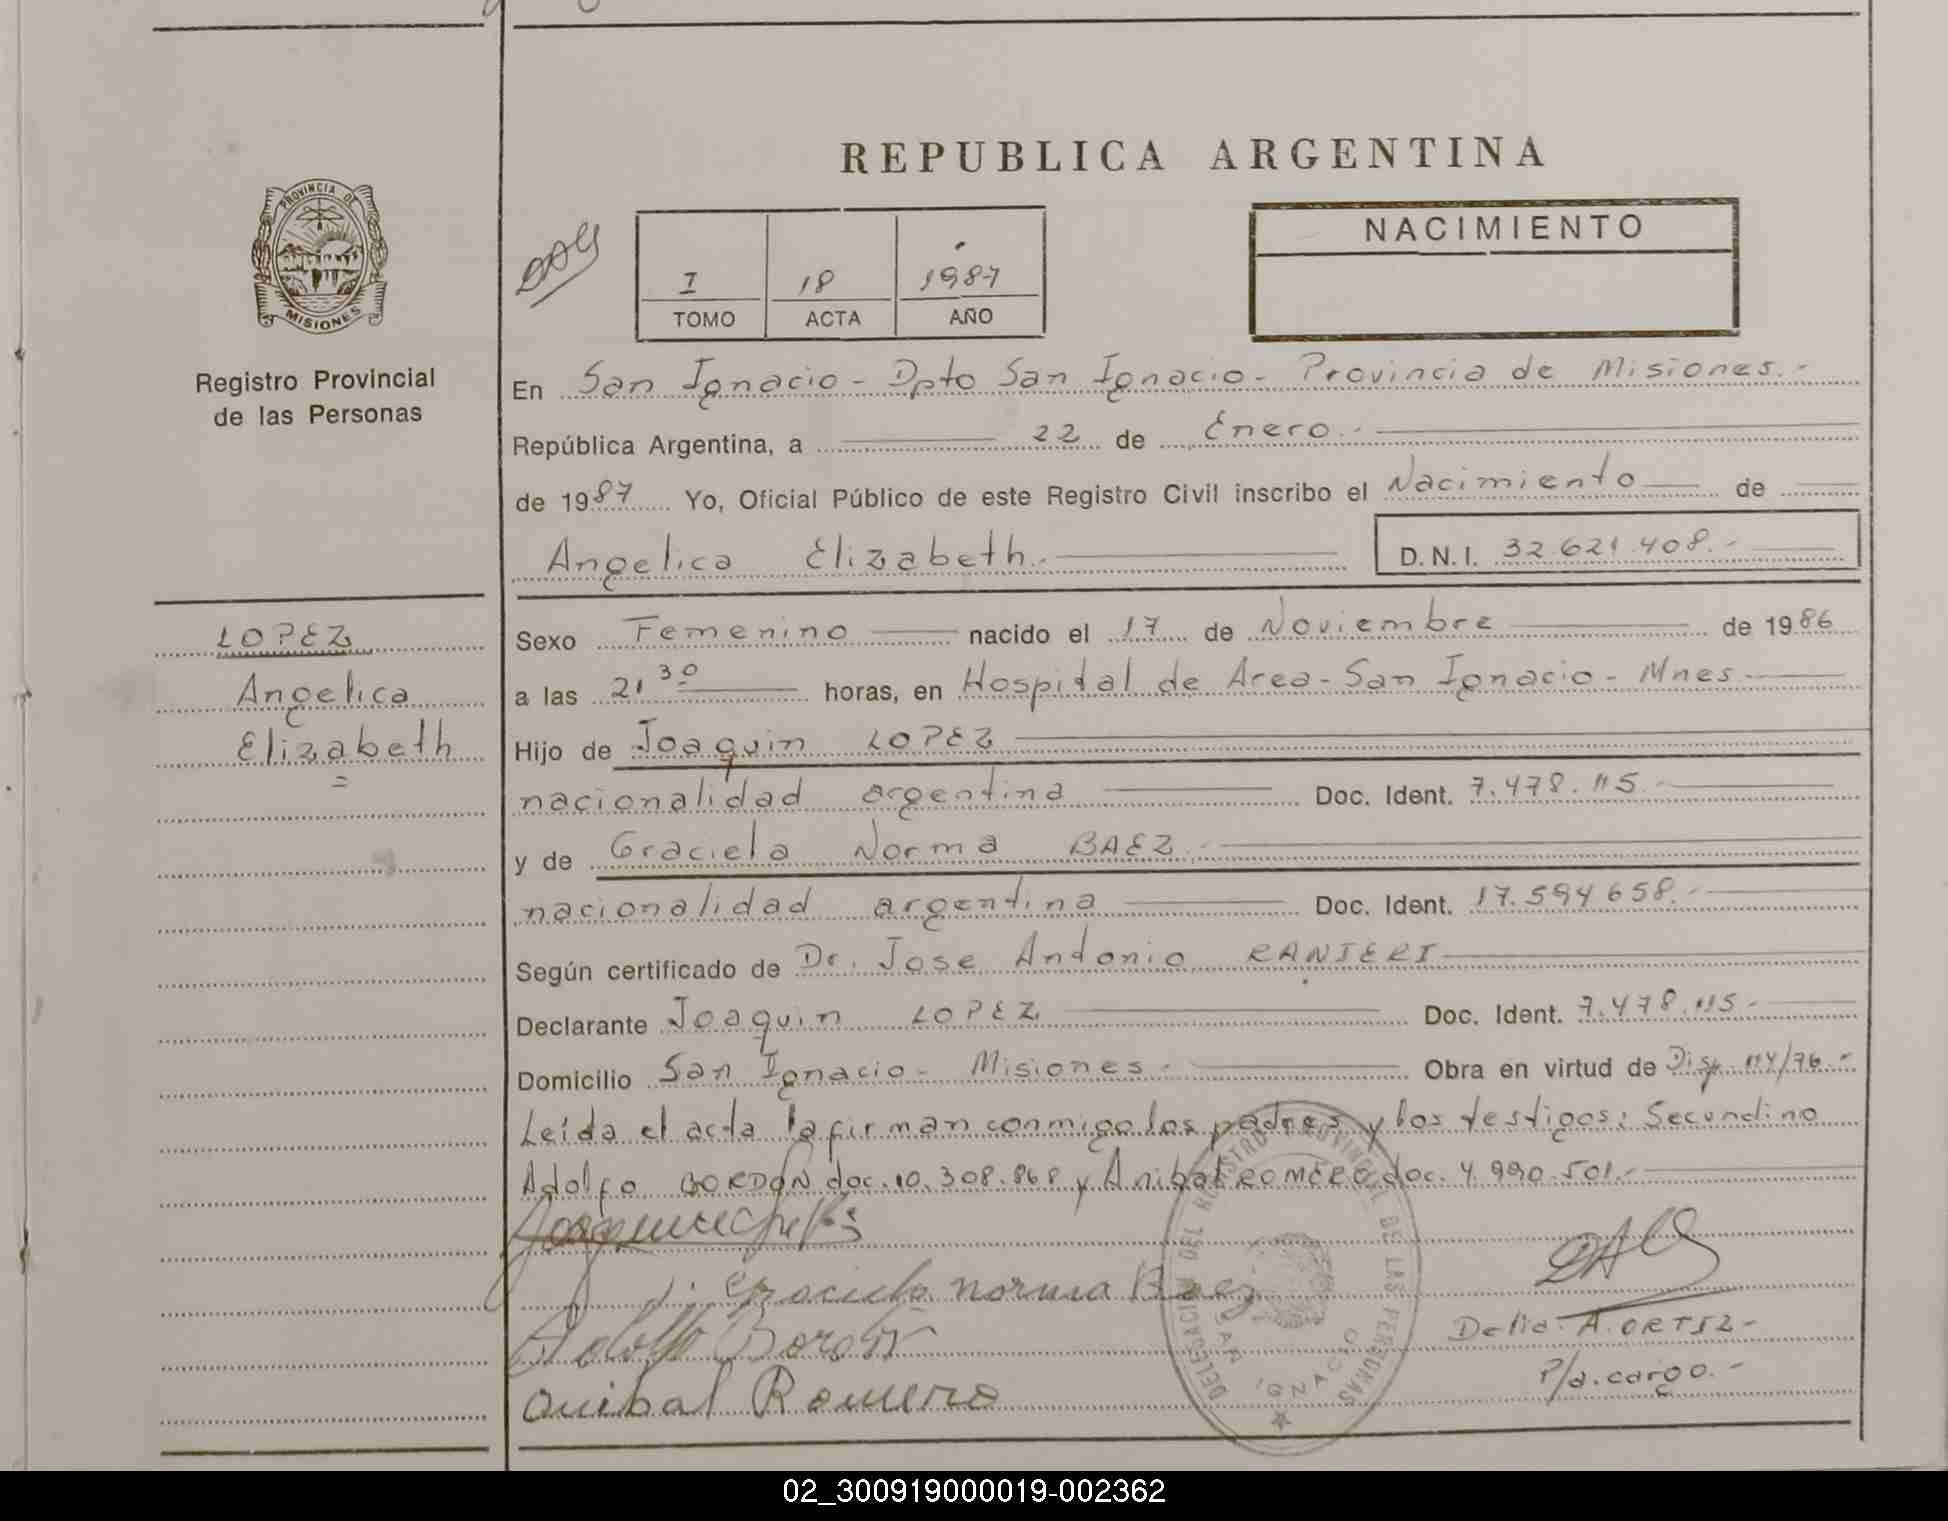 REPUBLICA ARGENTINA
PROVINCIA DE
MISIONES
Registro Provincial
de las Personas
I 18 1987
TOMO ACTA AÑO
NACIMIENTO
En San Ignacio - Dpto San Ignacio - Provincia de Misiones.-
República Argentina, a 22 de Enero.-
de 1987 Yo, Oficial Público de este Registro Civil inscribo el Nacimiento de
Angelica Elizabeth.- D.N.I. 32.621.408.-
LOPEZ
Angelica
Elizabeth
=
Sexo Femenino nacido el 17 de Noviembre de 1986
a las 21 30 horas, en Hospital de Area - San Ignacio - Mnes.-
Hijo de Joaquin LOPEZ
nacionalidad argentina Doc. Ident. 7.478.115.-
y de Graciela Norma BAEZ.-
nacionalidad argentina Doc. Ident. 17.594.658.-
Según certificado de Dr. Jose Antonio RANIERI
Declarante Joaquin LOPEZ Doc. Ident. 7.478.115.-
Domicilio San Ignacio - Misiones.- Obra en virtud de Disp. 114/76.-
Leída el acta la firman conmigo los padres y los testigos: Secundino
Adolfo BORDON doc. 10.308.868 y Anibal ROMERO doc. 4.990.501.-
Graciela Norma Baez
Adolfo
Anibal Romero
Delia A. ORTIZ -
P/a. cargo.-
DELEGACION DEL REGISTRO PROVINCIAL DE LAS PERSONAS
SAN IGNACIO
02_300919000019-002362